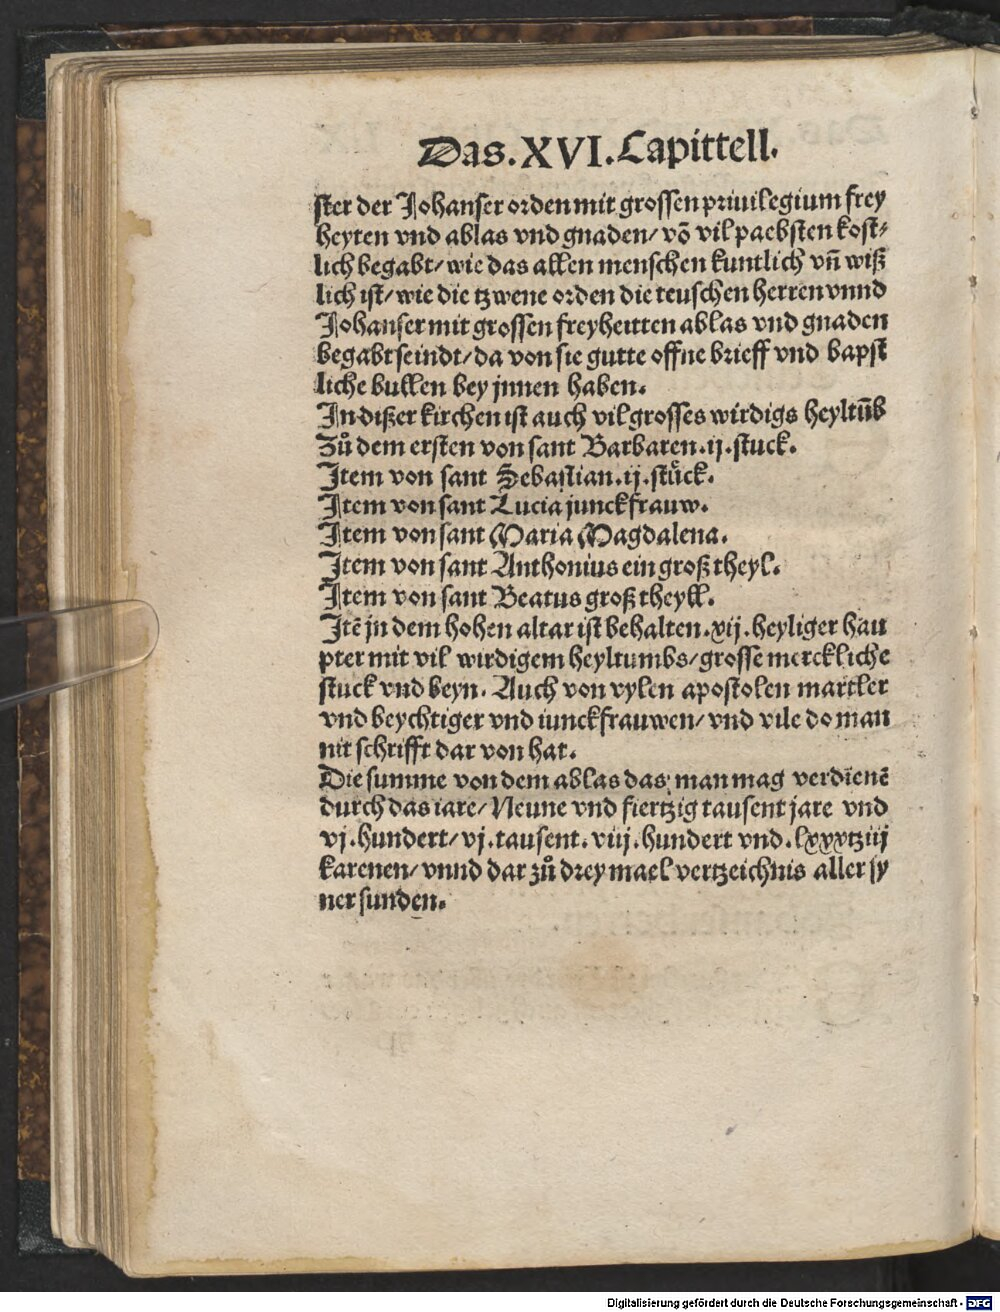 Das.XVI.Capittell.
ster der Johanser orden mit grossen priuilegium frey
heyten vnd ablas vnd gnaden/ võ vil paebsten kost⸗
lich begabt/ wie das allen menschen kuntlich vñ wiß
lich ist/ wie die tzwene orden die teuschen herren vnnd
Johanser mit grossen freyheitten ablas vnd gnaden
begabt seindt/ da von sie gutte offne brieff vnd bapst
liche bullen bey jnnen haben.
In dißer kirchen ist auch vil grosses wirdigs heyltũb
Zů dem ersten von sant Barbaren.ij.stuck.
Item von sant Sebastian.ij.stůck.
Item von sant Lucia junckfrauw.
Item von sant Maria Magdalena.
Item von sant Anthonius ein groß theyl.
Item von sant Beatus groß theyll.
Itẽ jn dem hohen altar ist behalten.xij.heyliger hau
pter mit vil wirdigem heyltumbs/ grosse merckliche
stuck vnd beyn. Auch von vylen apostolen martler
vnd beychtiger vnd iunckfrauwen/ vnd vile do man
nit schrifft dar von hat.
Die summe von dem ablas das man mag verdienẽ
durch das iare/ Neune vnd fiertzig tausent jare vnd
vj.hundert/ vj.tausent.viij.hundert vnd.lxxxtziij
karenen/ vnnd dar zů drey mael vertzeichnis aller sy
ner sunden.
Digitalisierung gefördert durch die Deutsche Forschungsgemeinschaft - DFG